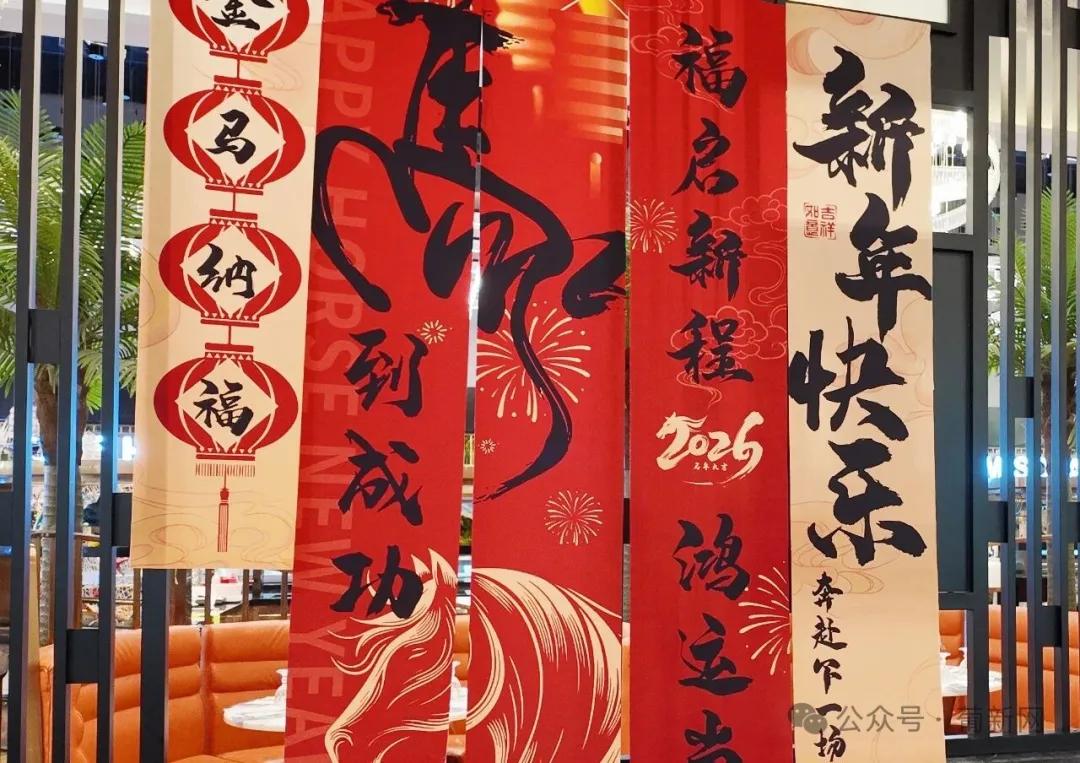 金马纳福
HAPPY HORSE NEW YEA
马
到成功
福启新程
2026
马年大吉
鸿运当
新年快乐
吉祥
如意
奔赴下一场
公众号·葡新网